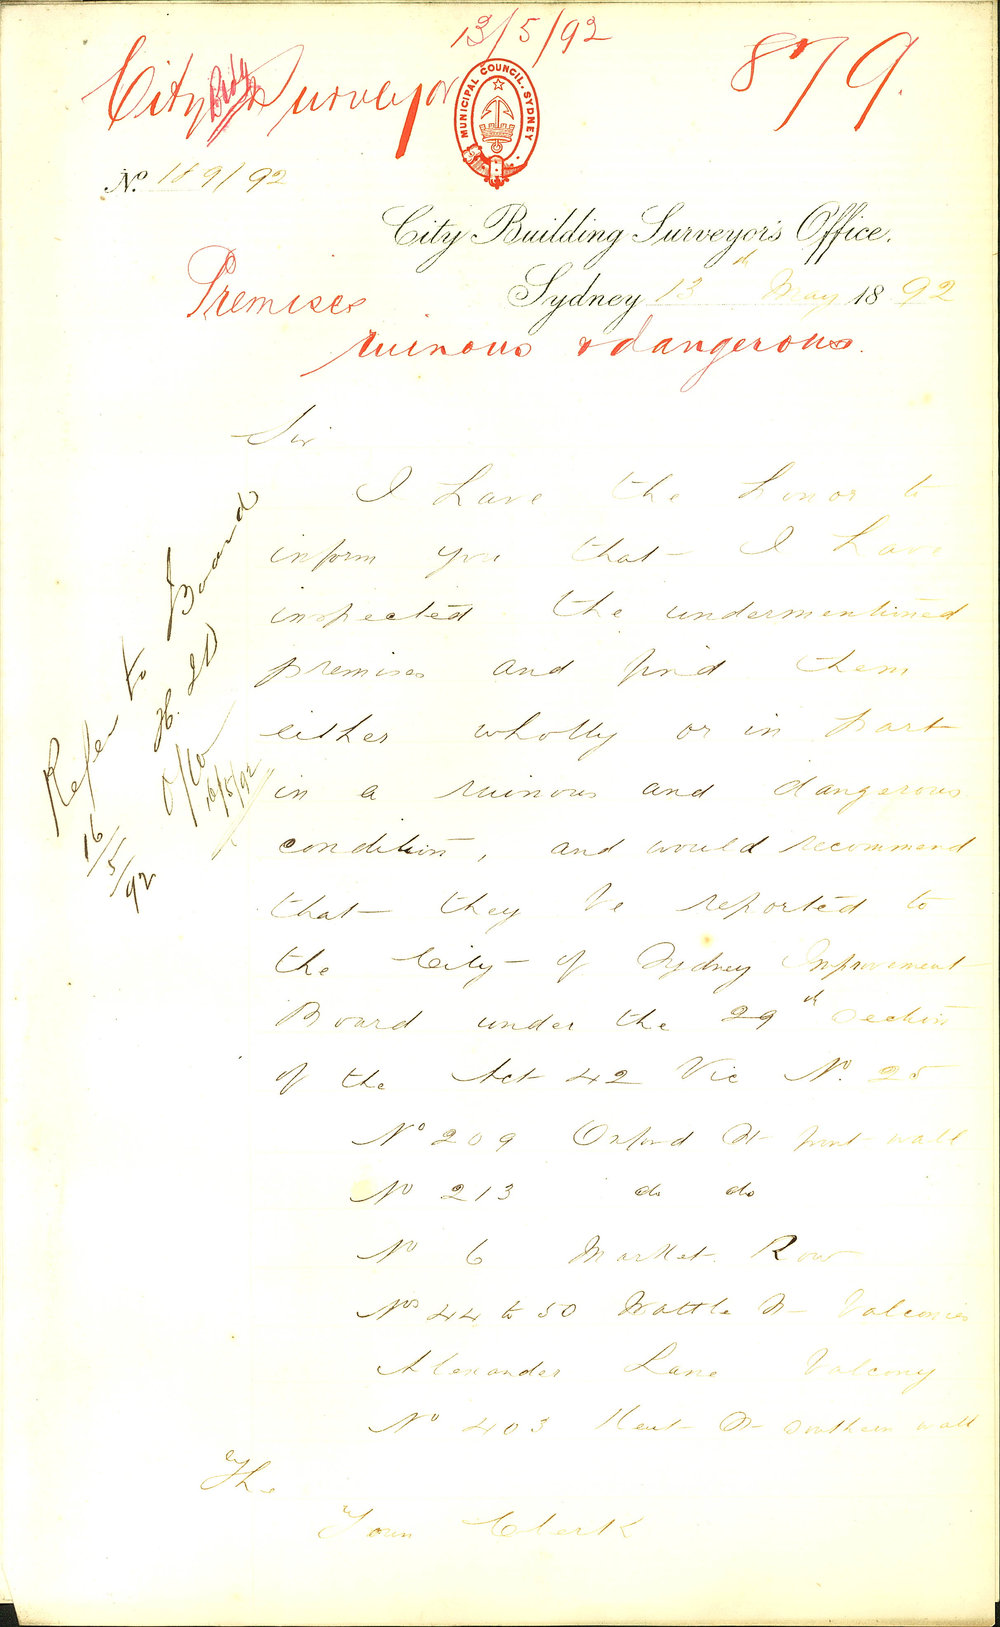 13/5/92
City Bldg Surveyor
879.
MUNICIPAL COUNCIL. SYDNEY
No. 189/92
City Building Surveyor's Office.
Sydney 13th May 1892
Premises
ruinous & dangerous.
Sir
I have the honor to
inform you that I have
inspected the undermentioned
premises and find them
either wholly or in part
in a ruinous and dangerous
condition, and would recommend
that they be reported to
the City of Sydney Improvement
Board under the 29th Section
of the Act 42 Vic No. 25
No 209 Oxford St front wall
No 213 do do
No 6 Market Row
Nos 44 to 50 Wattle St balconies
Alexander Lane balcony
No 403 Kent St southern wall
The
Town Clerk
Refer to Board
16/5/92
16/5/92